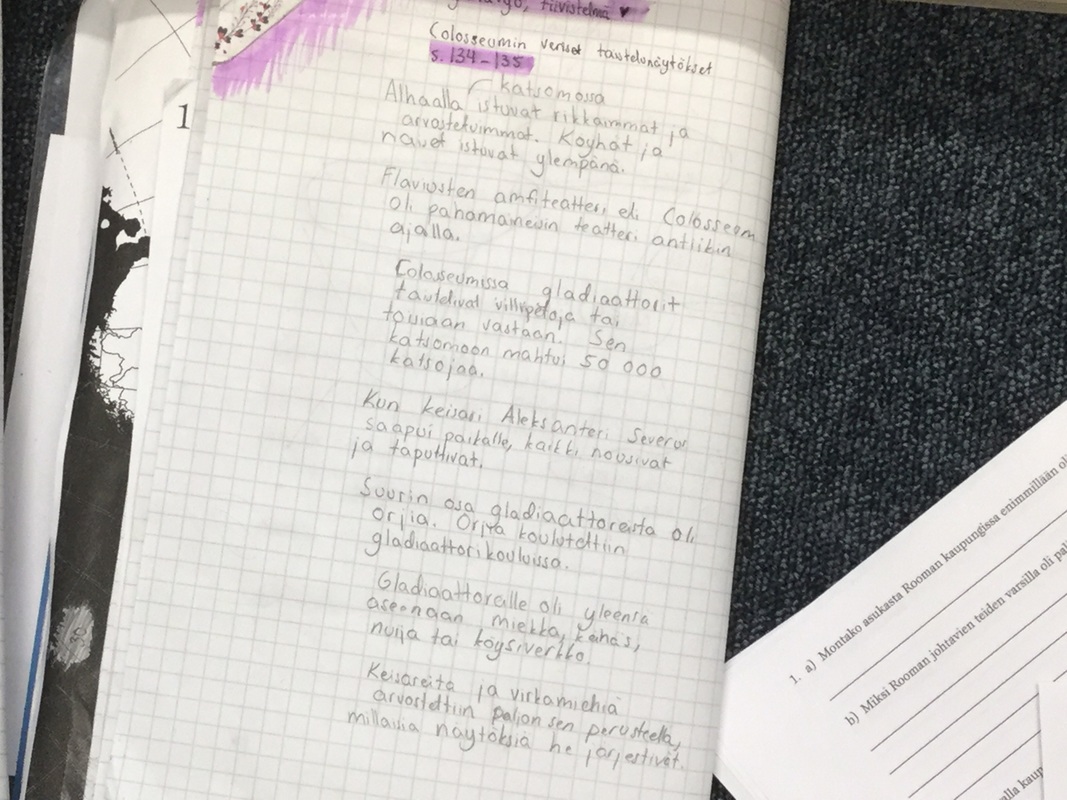 tiivistelmä ♥
Colosseumin veriset taistelunäytökset
s. 134-135
katsomossa
Alhaalla istuvat rikkaimmat ja
arvostetuimmat. Köyhät ja
naiset istuvat ylempänä.
Flaviusten amfiteatteri eli Colosseum
oli pahamaineisin teatteri antiikin
ajalla.
Colosseumissa gladiaattorit
taistelivat villipetoja tai
toisiaan vastaan. Sen
katsomoon mahtui 50 000
katsojaa.
Kun keisari Aleksanteri Severus
saapui paikalle, kaikki nousivat
ja taputtivat.
Suurin osa gladiaattoreista oli
orjia. Orjia koulutettiin
gladiaattorikouluissa.
Gladiaattoreille oli yleensä
aseenaan miekka, keihäs,
nuija tai köysiverkko.
Keisareita ja virkamiehiä
arvosteltiin paljon sen perusteella,
millaisia näytöksiä he järjestivät.
1
1. a) Montako asukasta Rooman kaupungissa enimmillään oli
b) Miksi Rooman johtavien teiden varsilla oli